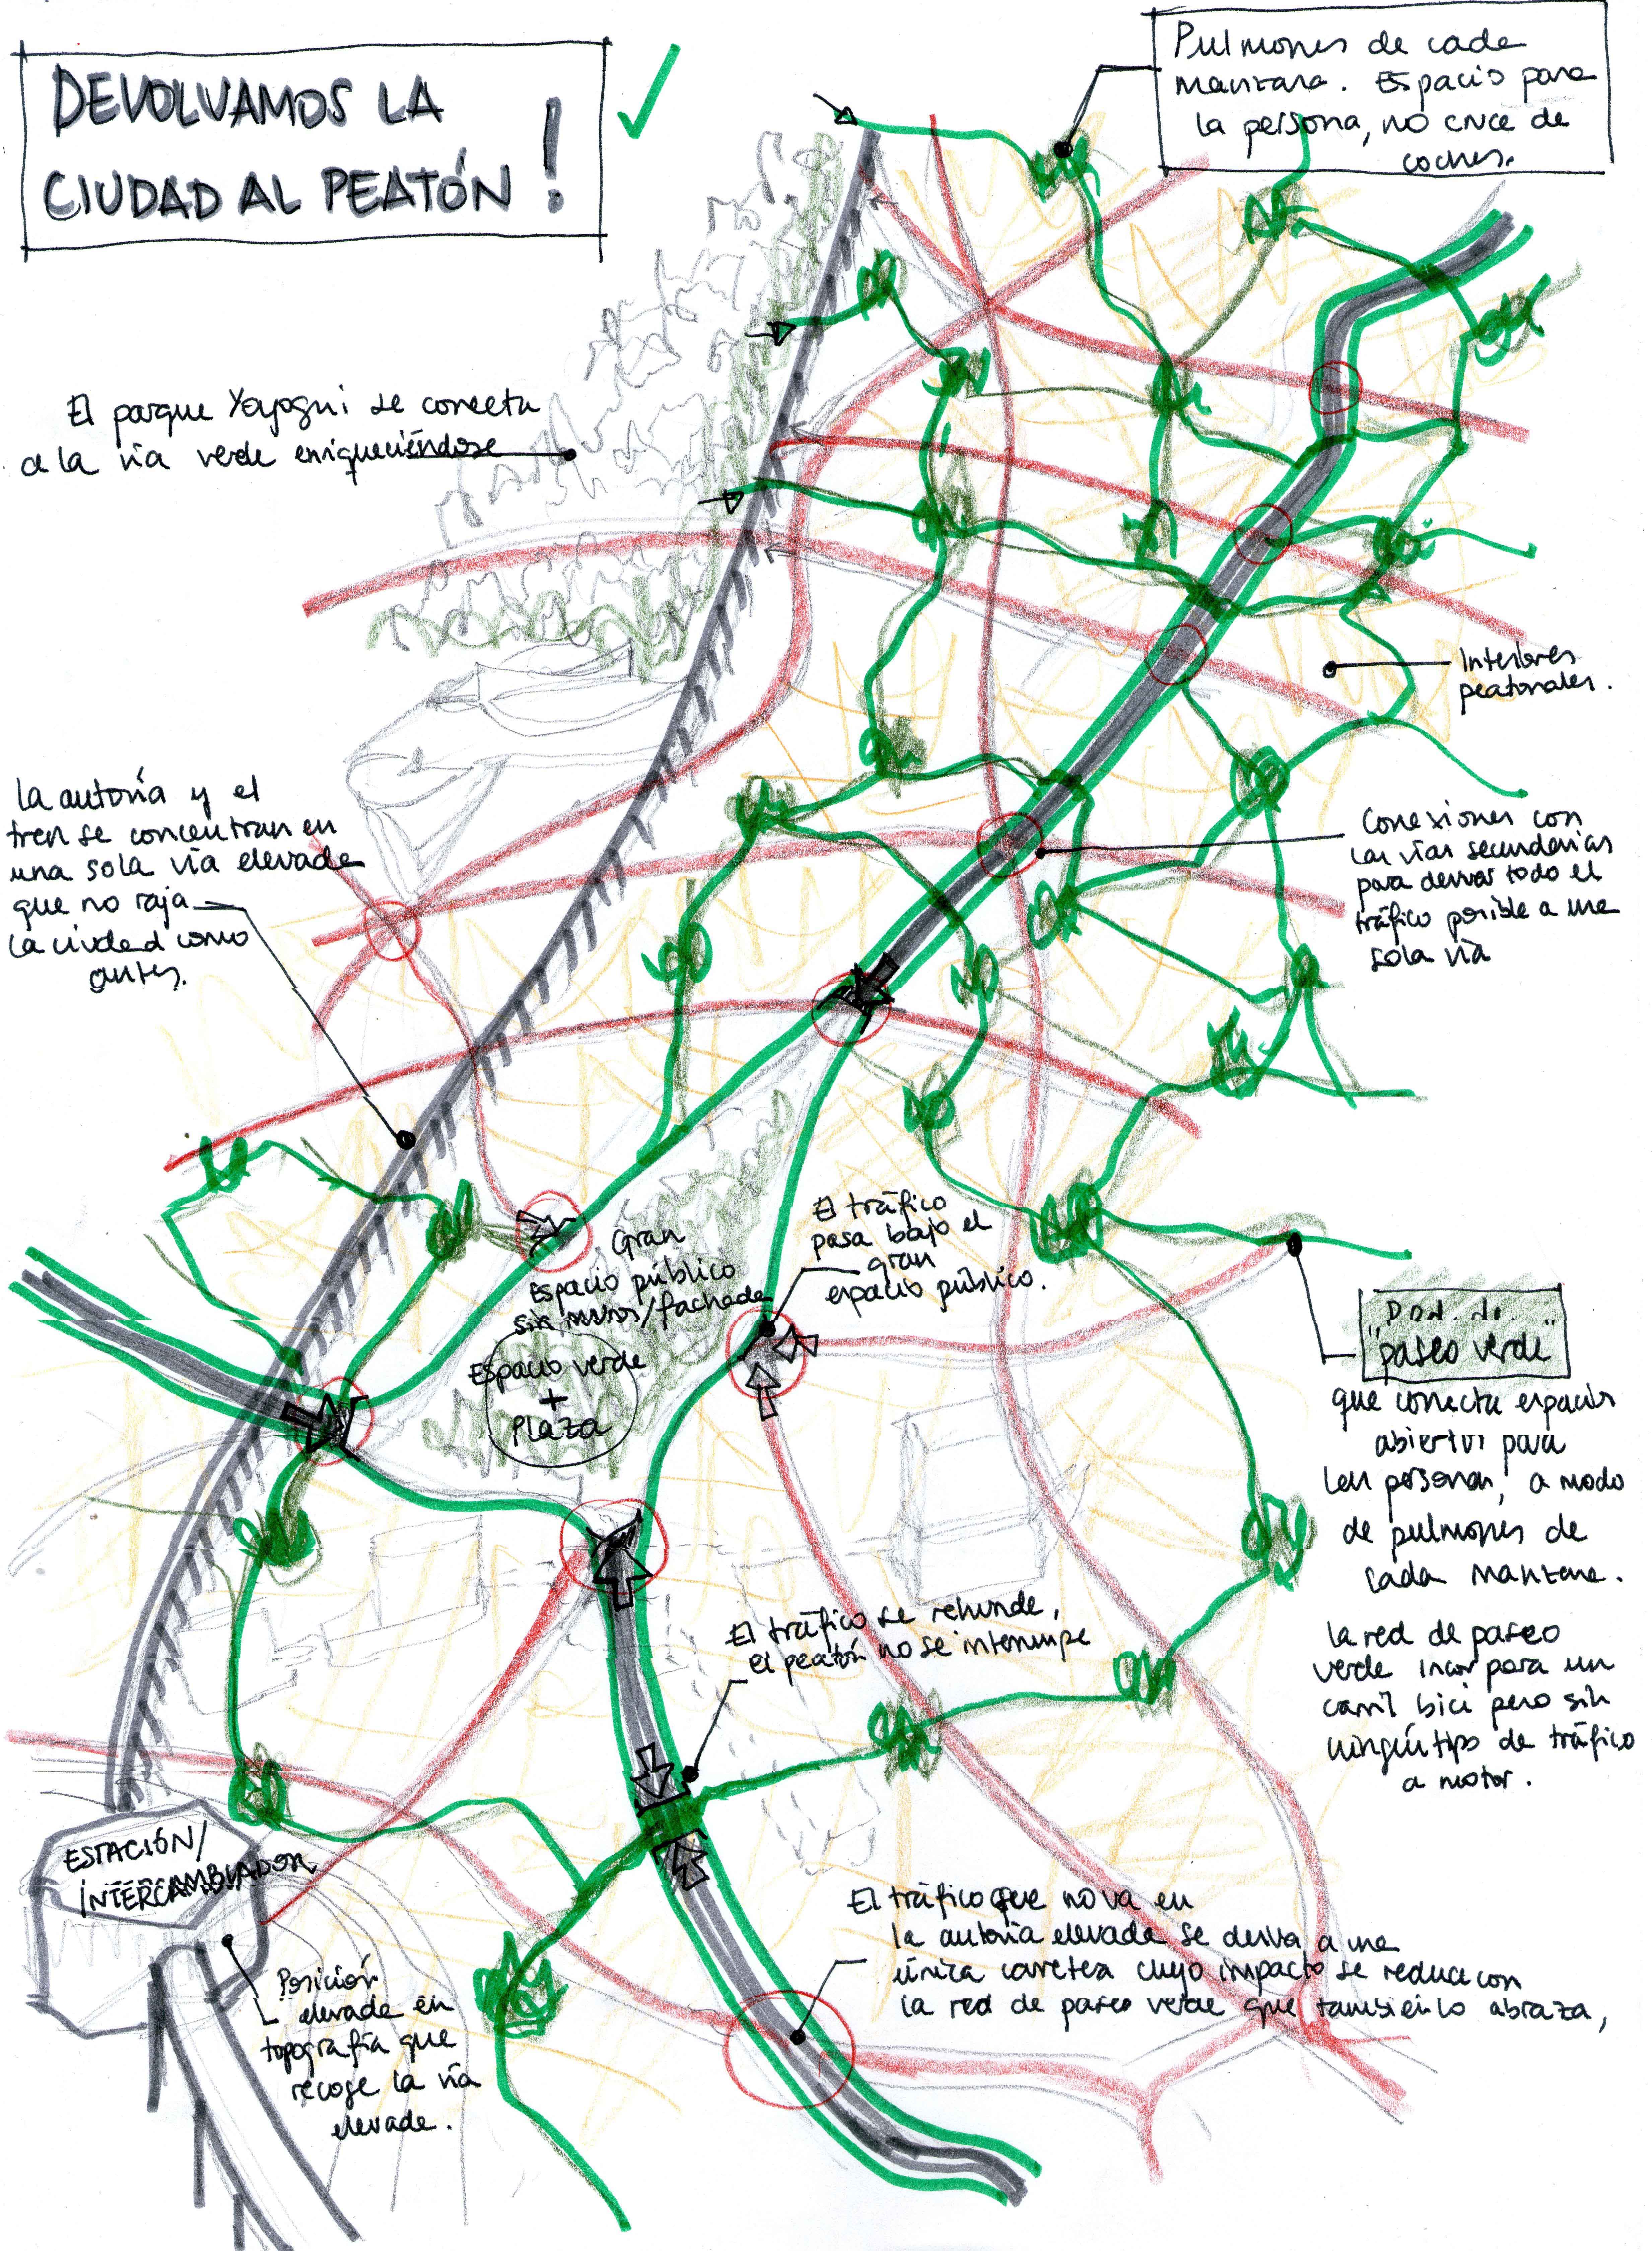 DEVOLVAMOS LA
CIUDAD AL PEATÓN !
Pulmones de cada
manzana. Espacio para
la persona, no cruce de
coches.
El parque Yoyogui se conecta
a la vía verde enriqueciéndose
Interiores
peatonales.
la autovía y el
tren se concentran en
una sola vía elevada
que no raja
la ciudad como
antes.
Conexiones con
las vías secundarias
para derivar todo el
tráfico posible a una
sola vía
El tráfico
pasa bajo el
gran
espacio público.
Gran
Espacio público
sin muros/fachada
Espacio verde
+
Plaza
Red de
"paseo verde"
que conecta espacios
abiertos para
las personas, a modo
de pulmones de
cada manzana.
la red de paseo
verde incorpora un
carril bici pero sin
ningún tipo de tráfico
a motor.
El tráfico se rehunde,
el peatón no se interrumpe
ESTACIÓN/
INTERCAMBIADOR
Posición
elevada en
topografía que
recoge la vía
elevada.
El tráfico que no va en
la autovía elevada se deriva a una
única carretera cuyo impacto se reduce con
la red de paseo verde que también lo abraza,